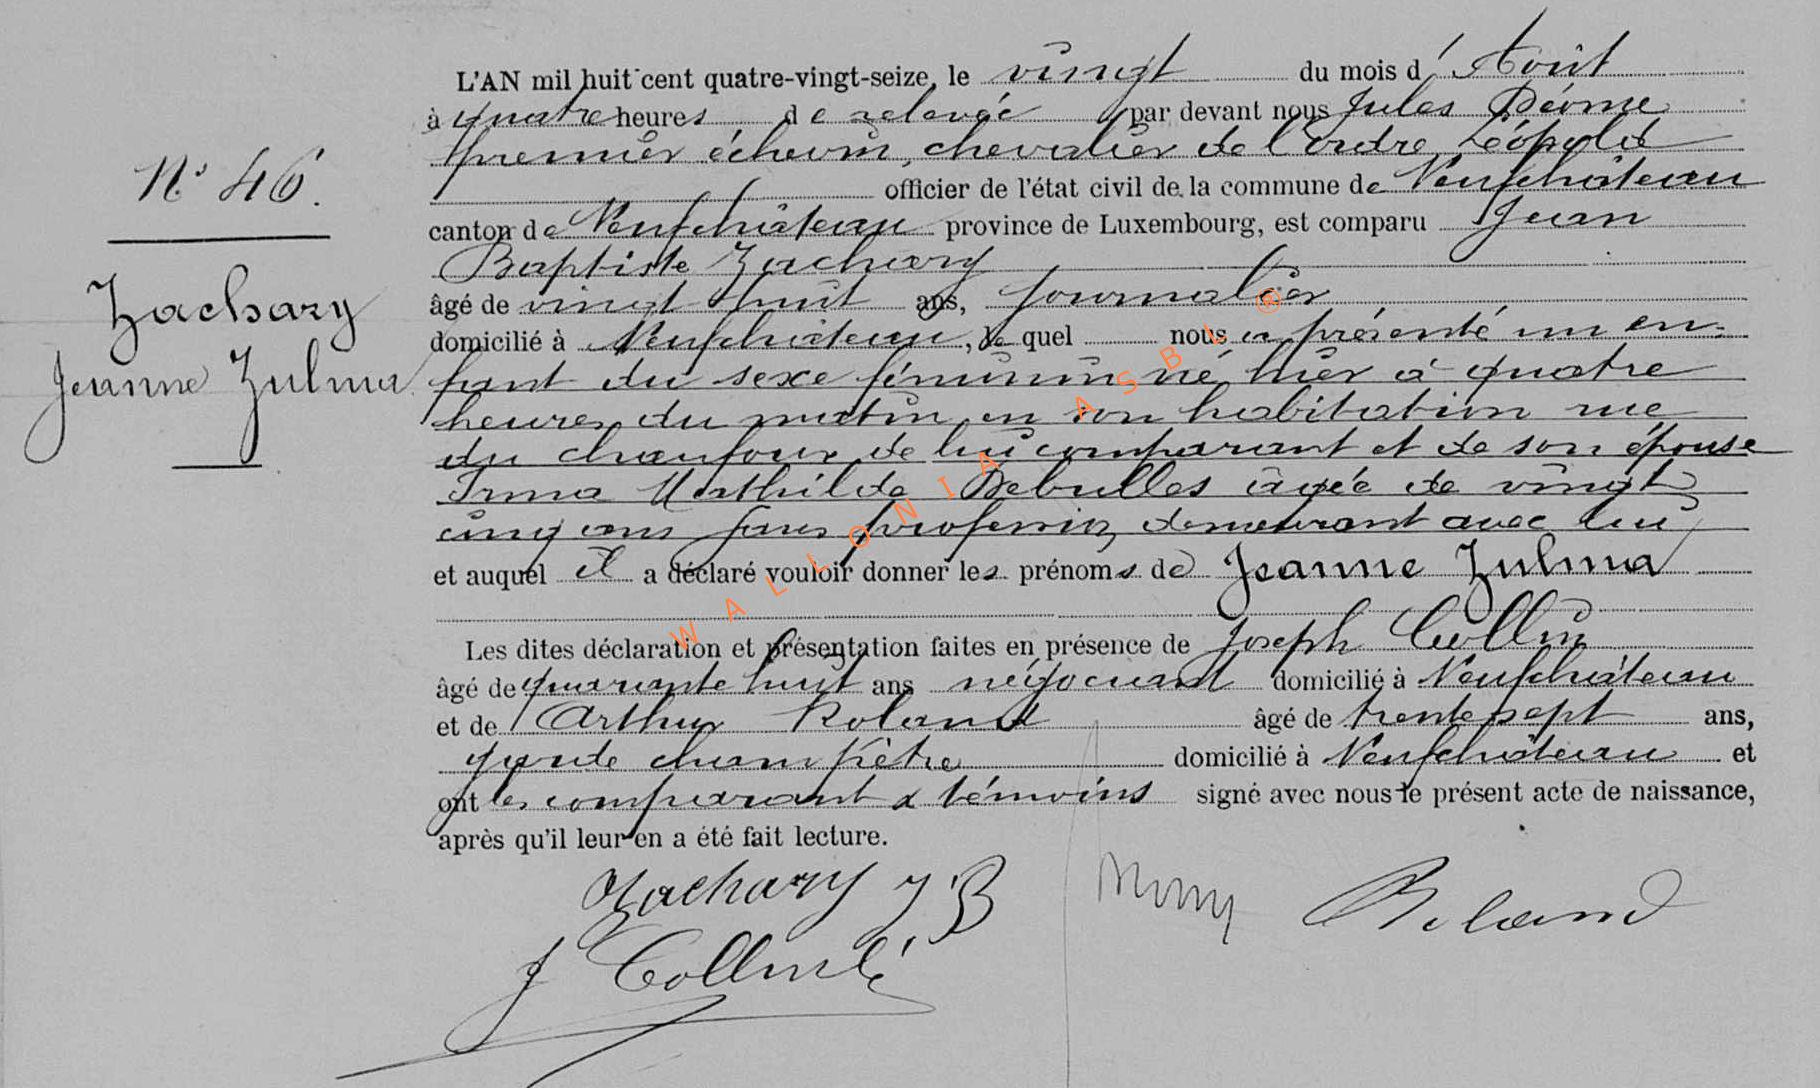 N° 46.
Zachary
Jeanne Zulma
L'AN mil huit cent quatre-vingt-seize, le vingt du mois d' Août
à quatre heures de relevée par devant nous Jules
premier échevin, chevalier de l'ordre Léopold
officier de l'état civil de la commune de Neufchâteau
canton de Neufchâteau province de Luxembourg, est comparu Jean
Baptiste Zachary
âgé de vingt huit ans, journalier
domicilié à Neufchâteau, le quel nous a présenté un en-
fant du sexe féminin né hier à quatre
heures du matin en son habitation rue
du chaufour de lui comparant et de son épouse
Irma Mathilde Debulles âgée de vingt
cinq ans sans profession, demeurant avec lui
et auquel il a déclaré vouloir donner les prénoms de Jeanne Zulma
Les dites déclaration et présentation faites en présence de Joseph Collin
âgé de quarante huit ans négociant domicilié à Neufchâteau
et de Arthur Roland âgé de trente sept ans,
garde champêtre domicilié à Neufchâteau et
ont les comparant & témoins signé avec nous le présent acte de naissance,
après qu'il leur en a été fait lecture.
Zachary J B
Roland
J Collin
WALLONIA ASBL ®